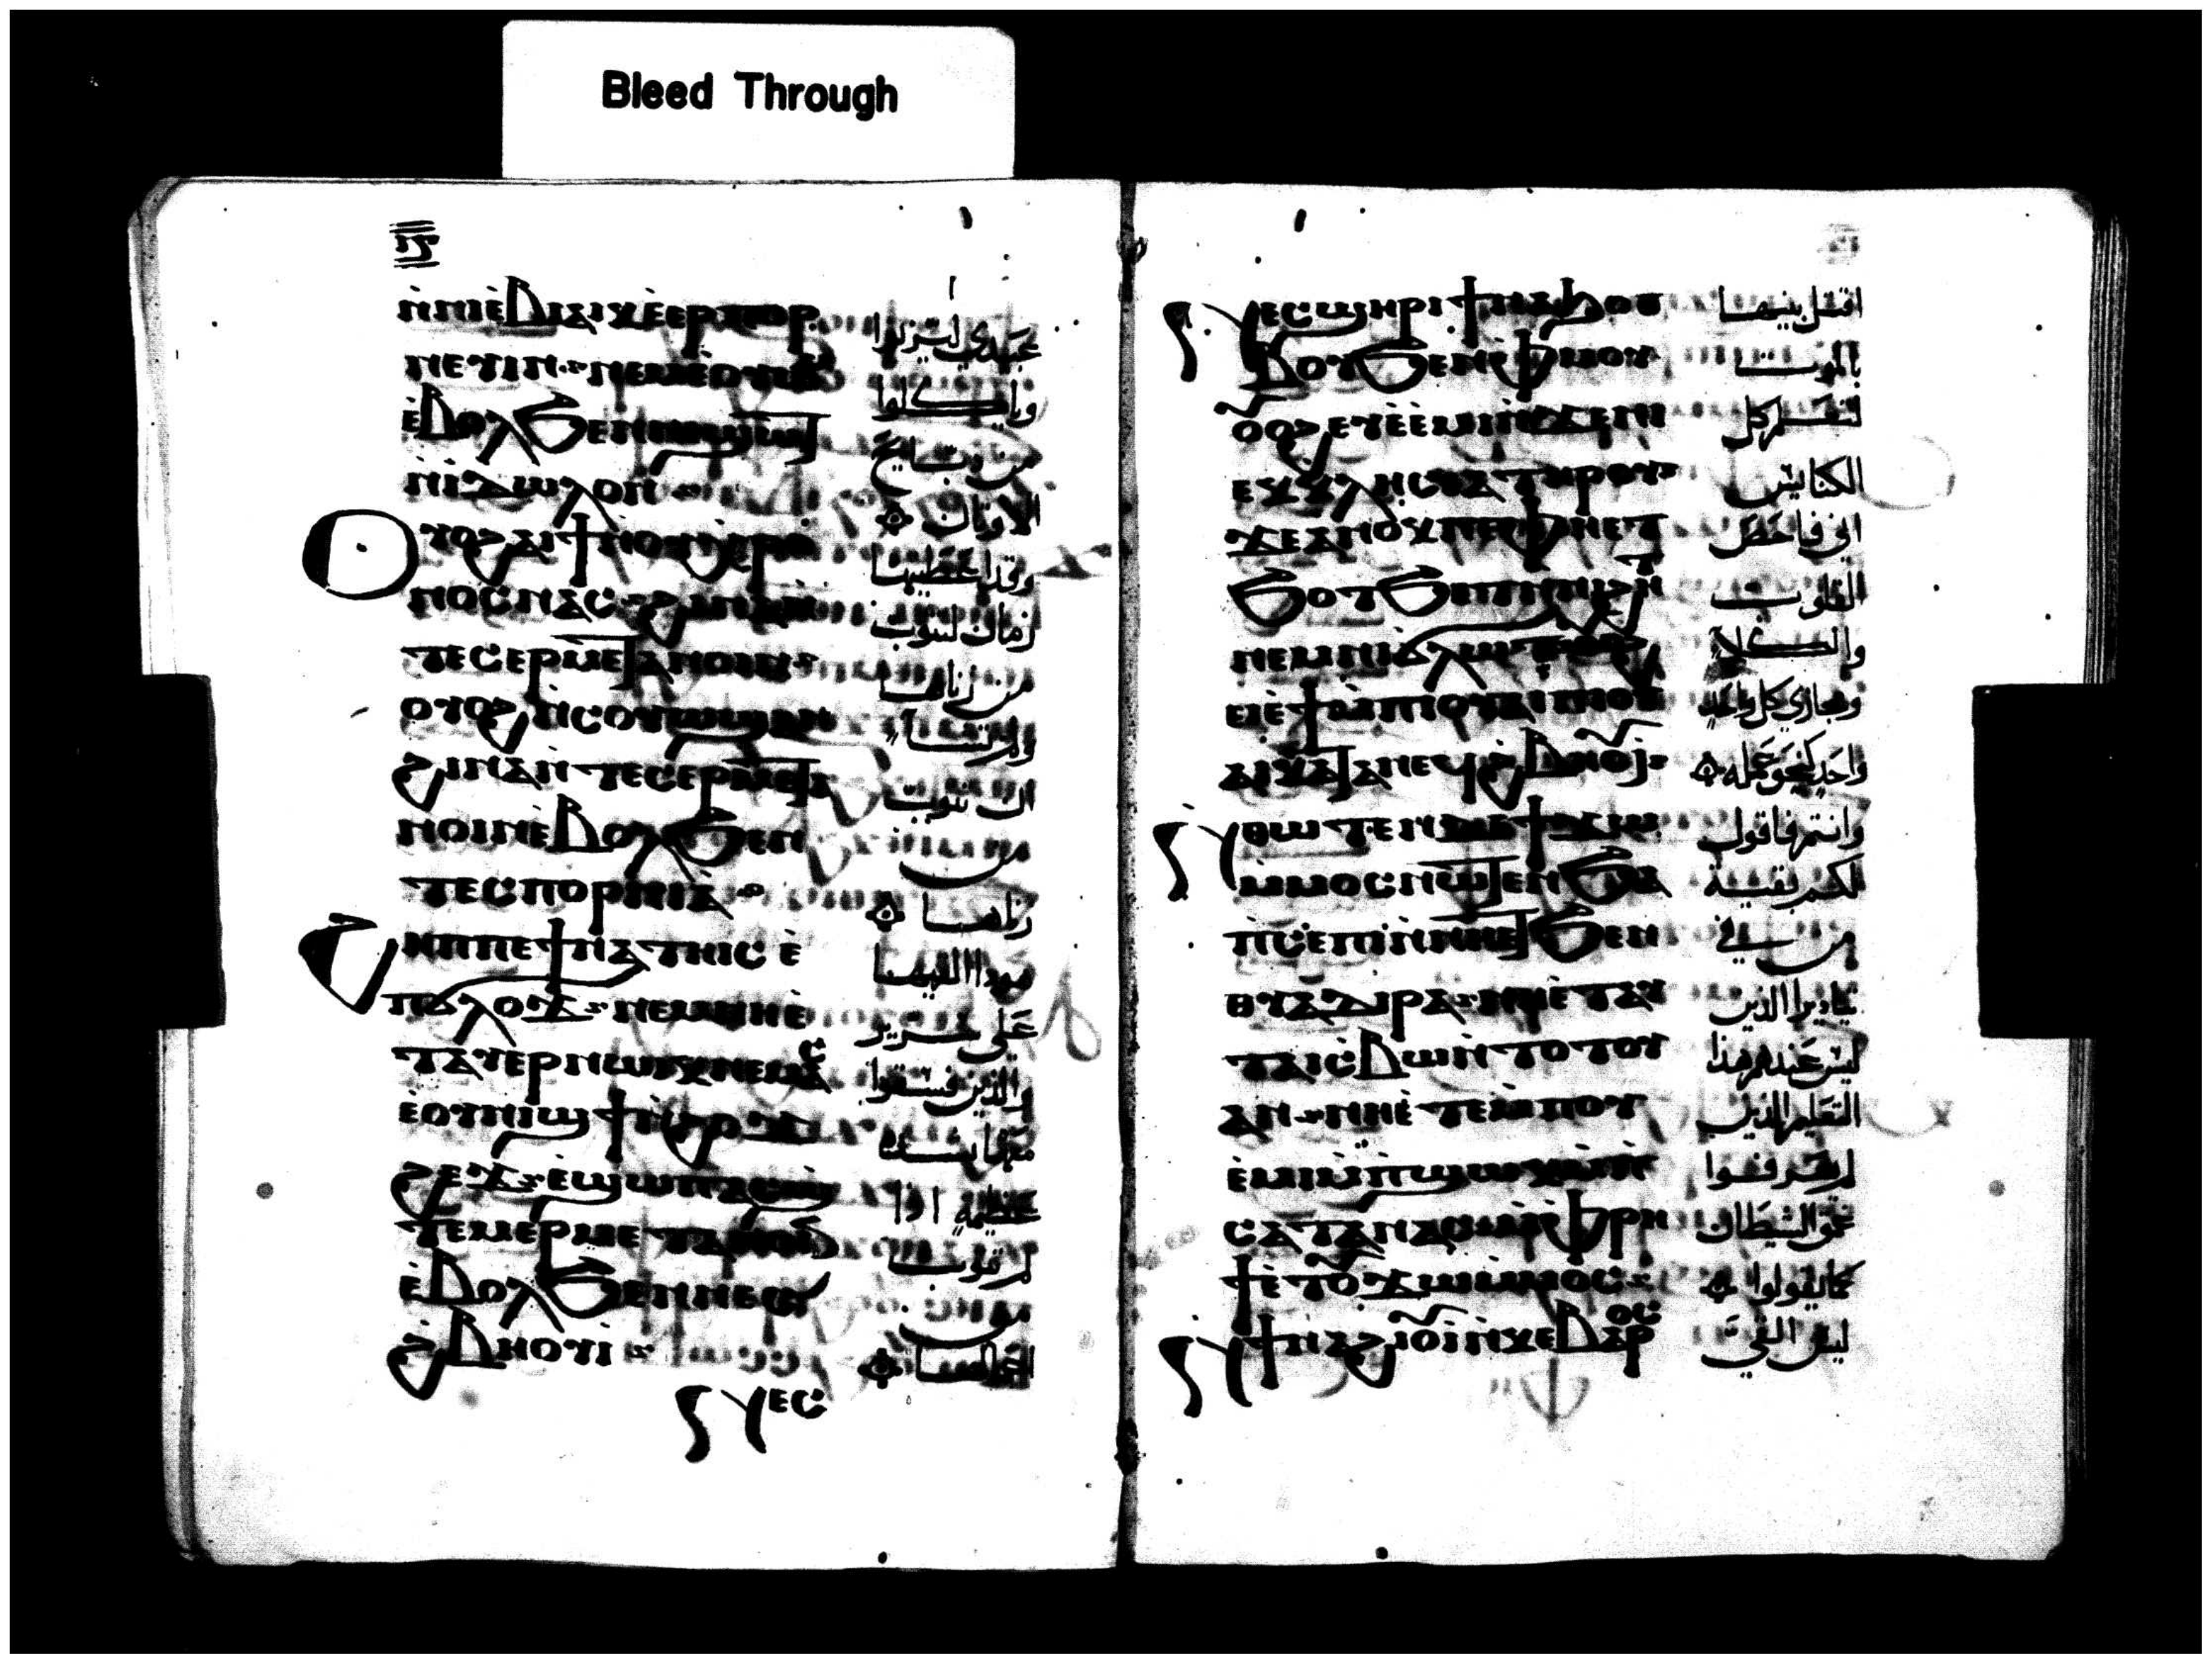 Bleed Through
ⲓⲋ
ⲛⲛⲓⲉⲃⲓⲁⲓⲕ ⲉⲉⲣⲡⲟⲣ
ⲛⲉⲩⲓⲛ ⲛⲉⲙⲉⲟⲩⲱⲙ
ⲉⲃⲟⲗϧⲉⲛⲛⲓϣⲱⲧ
ⲛⲓⲇⲱⲗⲟⲛ
ⲟⲩⲟϩ ⲁⲓϯⲛⲟⲩⲭⲣⲟ
ⲛⲟⲥ ⲛⲁⲥ ϩⲓⲛⲁ ⲛ
ⲧⲉⲥⲉⲣⲙⲉⲧⲁⲛⲟⲓⲛ
ⲟⲩⲟϩ ⲙⲡⲥⲟⲩⲱϣ ⲁⲛ
ϩⲓⲛⲁ ⲛⲧⲉⲥⲉⲣⲙⲉⲧⲁ
ⲛⲟⲓⲛ ⲉⲃⲟⲗϧⲉⲛ
ⲧⲉⲥⲡⲟⲣⲛⲓⲁ
ϩⲏⲡⲡⲉ ϯⲛⲁϩⲓⲧⲥ ⲉ
ⲡϭⲗⲟϫ ⲛⲉⲙⲛⲏⲉ
ⲧⲁⲩⲉⲣⲛⲱⲓⲕ ⲛⲉⲙⲁⲥ
ⲉⲟⲩⲛⲓϣϯ ⲛϩⲟϫ
ϩⲉϫ ⲉϣⲱⲡ ⲁⲥϣ
ⲧⲉⲙⲉⲣⲙⲉⲧⲁⲛⲟⲓⲛ
ⲉⲃⲟⲗϧⲉⲛⲛⲉⲥ
ϩⲃⲏⲟⲩⲓ
ⲛⲉⲥ
عبيدي ليزنوا
وياكلوا
من دبايح
الاوثان
وقد اعطيتها
زمان لتتوب
من زناها
ولم تشاء
ان تتوب
من
زناها
هوذا القيها
على سرير
والذين فسقوا
معها بشده
عظيمه اذا
لم تتوب
من
اعمالها
ⲛⲉⲥϣⲏⲣⲓ ϯⲛⲁϧⲟⲑ
ⲃⲟⲩ ϧⲉⲛⲫⲙⲟⲩ
ⲟⲩⲟϩ ⲉⲩⲉⲉⲙⲓ ⲛϫⲉⲛⲓ
ⲉⲕⲕⲗⲏⲥⲓⲁ ⲧⲏⲣⲟⲩ
ϫⲉ ⲁⲛⲟⲕ ⲡⲉ ⲫⲏⲉⲧ
ϧⲟⲧϧⲉⲧ ⲛⲛⲓϩⲏⲧ
ⲛⲉⲙ ⲛⲓϭⲗⲱⲧ
ⲉⲓⲉϯ ⲙⲡⲓⲟⲩⲁⲓ ⲡⲓⲟⲩ
ⲁⲓ ⲕⲁⲧⲁ ⲛⲉϥϩⲃⲏⲟⲩⲓ
ⲛⲑⲱⲧⲉⲛ ⲇⲉ ϯϫⲱ
ⲙⲙⲟⲥ ⲛⲱⲧⲉⲛ ϧⲁ
ⲡⲥⲉⲡⲓ ⲛⲛⲏⲉⲧϧⲉⲛ
ⲑⲩⲁⲇⲓⲣⲁ ⲛⲏⲉⲧⲁⲓ
ⲧⲁⲓⲥⲃⲱ ⲛⲧⲟⲧⲟⲩ
ⲁⲛ ⲛⲏⲉⲧⲉⲙⲡⲟⲩ
ⲉⲙⲓ ⲉⲡϣⲱⲕ ⲙⲡ
ⲥⲁⲧⲁⲛⲁⲥ ⲙⲫⲣⲏ
ϯ ⲉⲧⲟⲩϫⲱ ⲙⲙⲟⲥ
ⲛϯⲛⲁϩⲓⲟⲩⲓ ⲛⲕⲉⲃⲁⲣⲟⲥ
اقتل بنيها
بالموت
لتعلم كل
الكنايس
اني فاحص
القلوب
والكلا
ومجازي كل واحد
واحد كنحو عمله
وانتم فاقول
لكم بقية
من في
ثياديرا الذين
ليس عندهم هذا
التعليم الذين
لم يعرفوا
عمق الشيطان
كما يقولوا
ليس القي